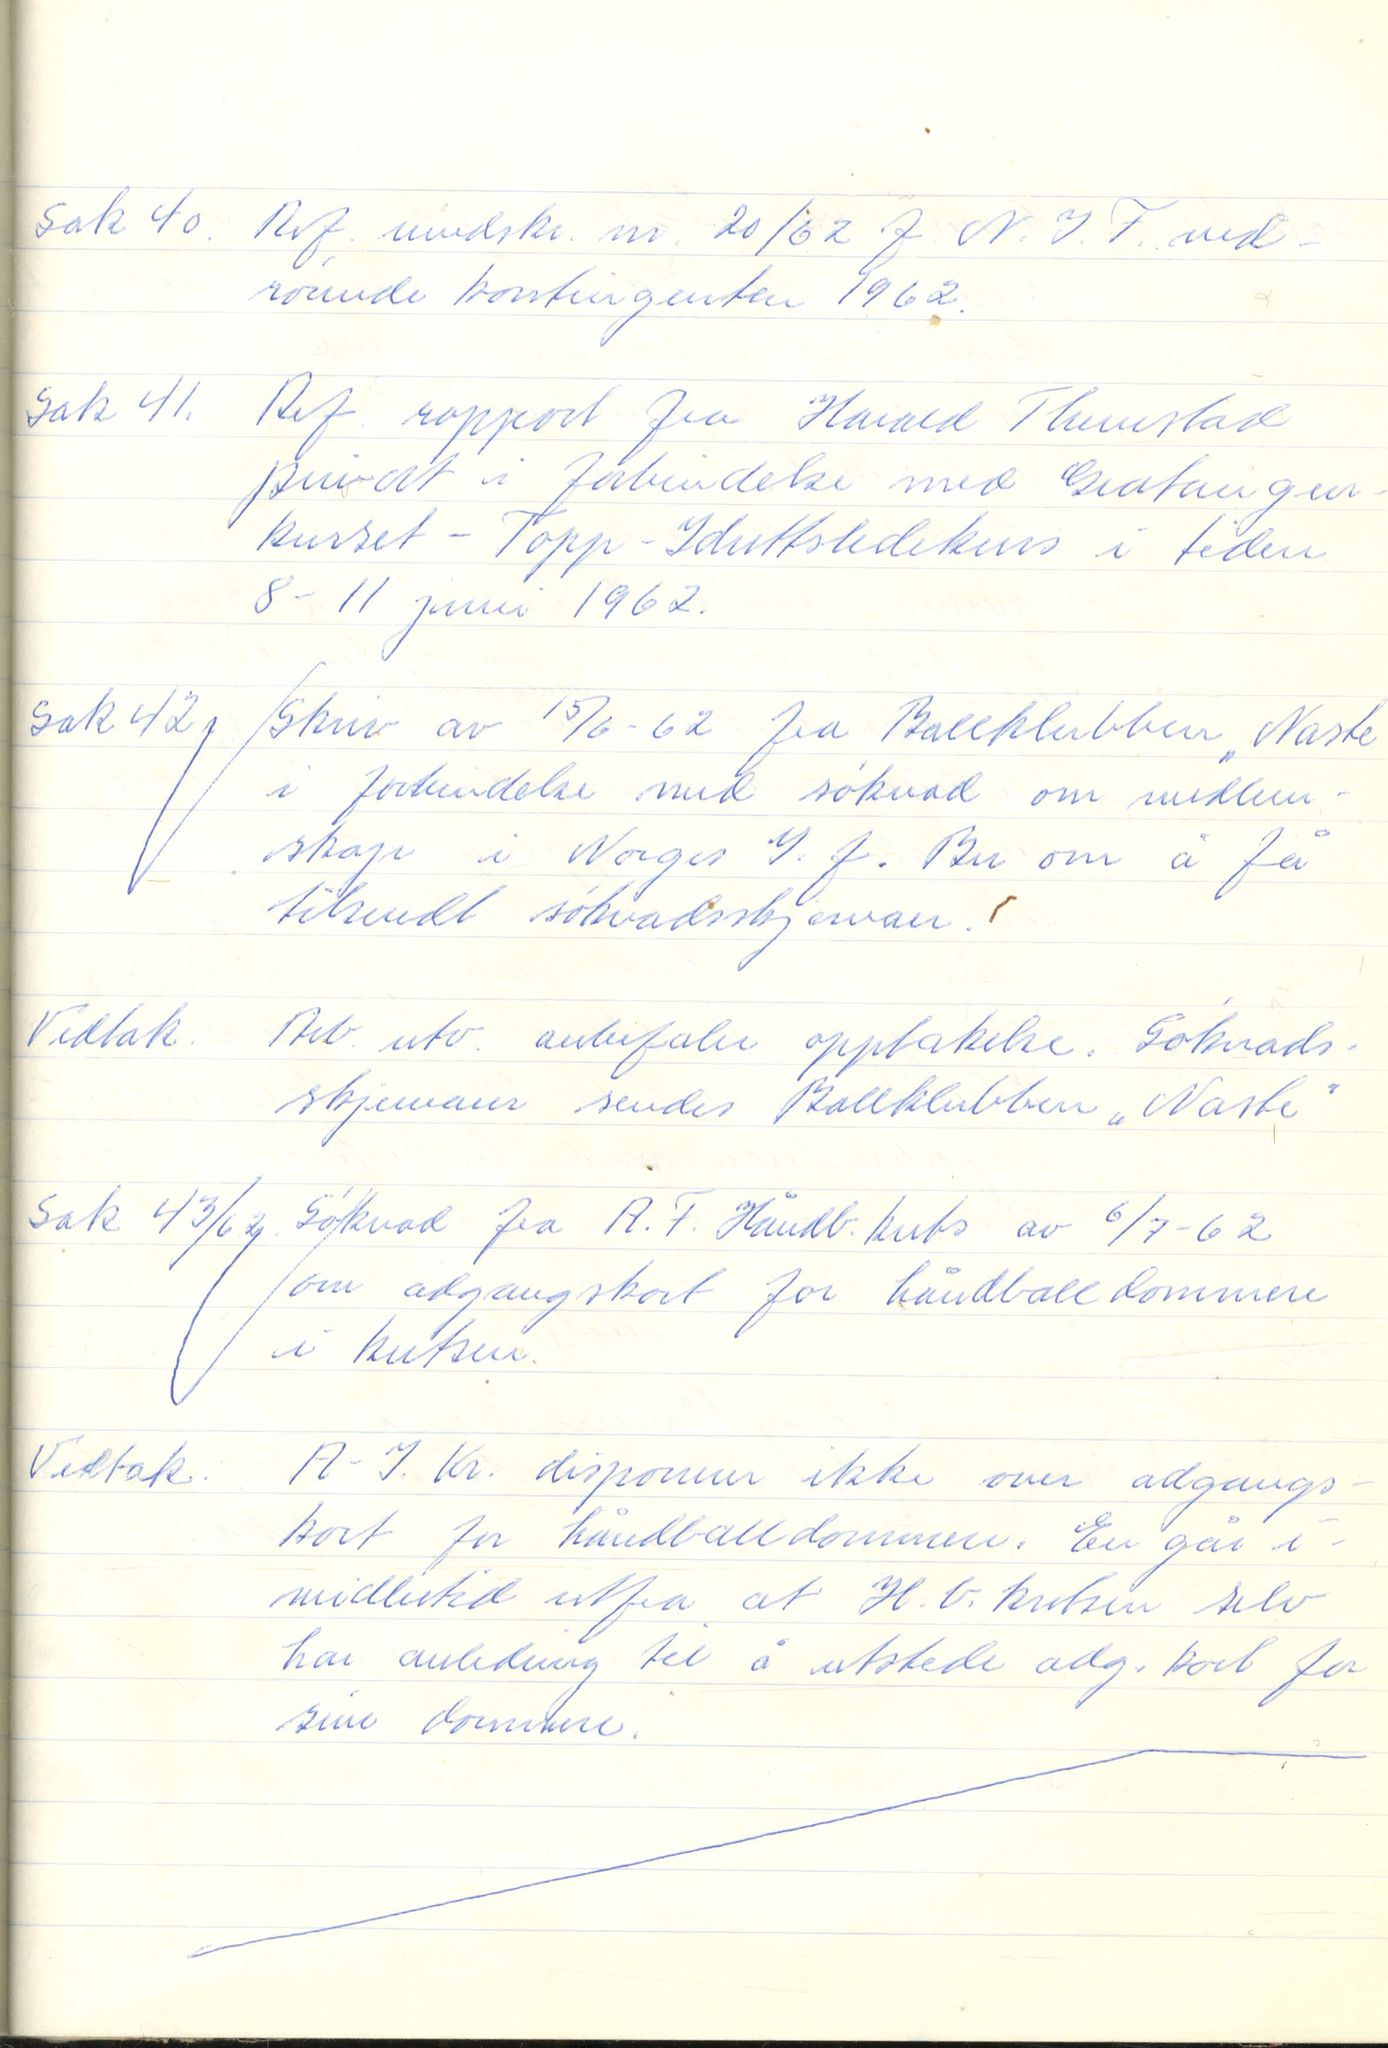 Sak 40. Ref. rundskr. nr. 20/62 f N. I. F. ved-
rörende kontingenten 1962.
Sak 41. Ref. rapport fra Harald Thunstad
privat i forbindelse med Gratangen-
kurset - Topp-Idrettsledekurs i tiden
8 - 11 juni 1962.
Sak 42, Skriv av 15/6-62 fra Ballklubben „Naste
i forbindelse med söknad om medlem-
skap i Norges I. f. Ber om å få
tilsendt söknadsskjemaer.
Vedtak. Arb. utv. anbefaler opptakelse. Söknads-
skjemaer sendes Ballklubben „Naste"
Sak 43/62. Söknad fra A. F. Håndb. krets av 6/7-62
om adgangskort for håndballdommere
i kretsen.
Vedtak. A-I. Kr. disponerer ikke over adgangs-
kort for håndballdommere. En går i-
midlertid utfra at H. b. kretsen selv
har anledning til å utstede adg. kort for
sine dommere.